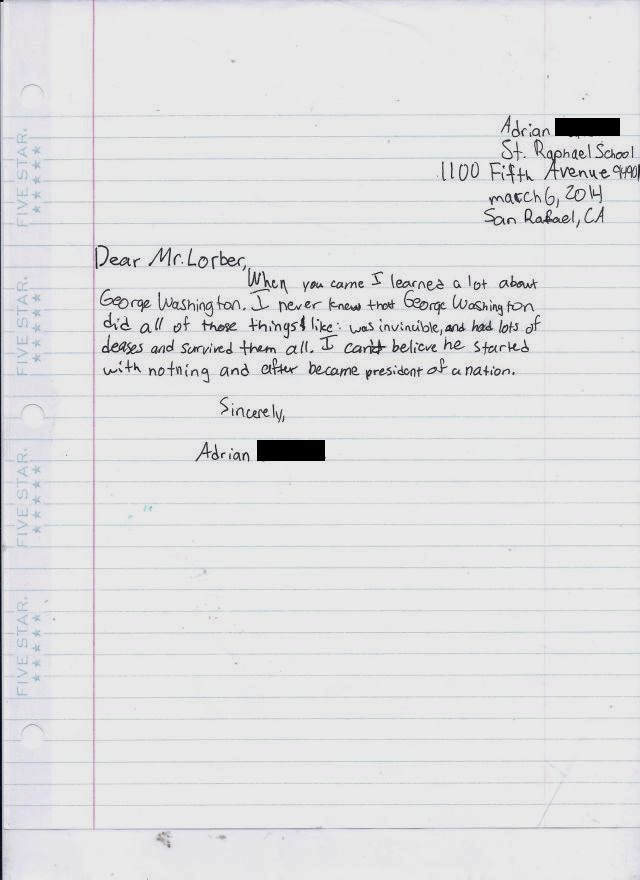 Adrian
St. Raphael School
1100 Fifth Avenue 94901
march 6, 2014
San Rafael, CA
Dear Mr. Lorber,
When you came I learned a lot about
George Washington. I never knew that George Washington
did all of those things like: was invincible, and had lots of
deases and survived them all. I can't believe he started
with nothing and after became president of a nation.
Sincerely,
Adrian
FIVE STAR.
FIVE STAR.
FIVE STAR.
FIVE STAR.